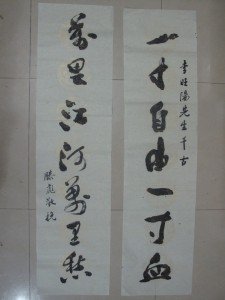 李旺陽先生千古
一寸自由一寸血
萬里江河萬里愁
滕彪敬挽